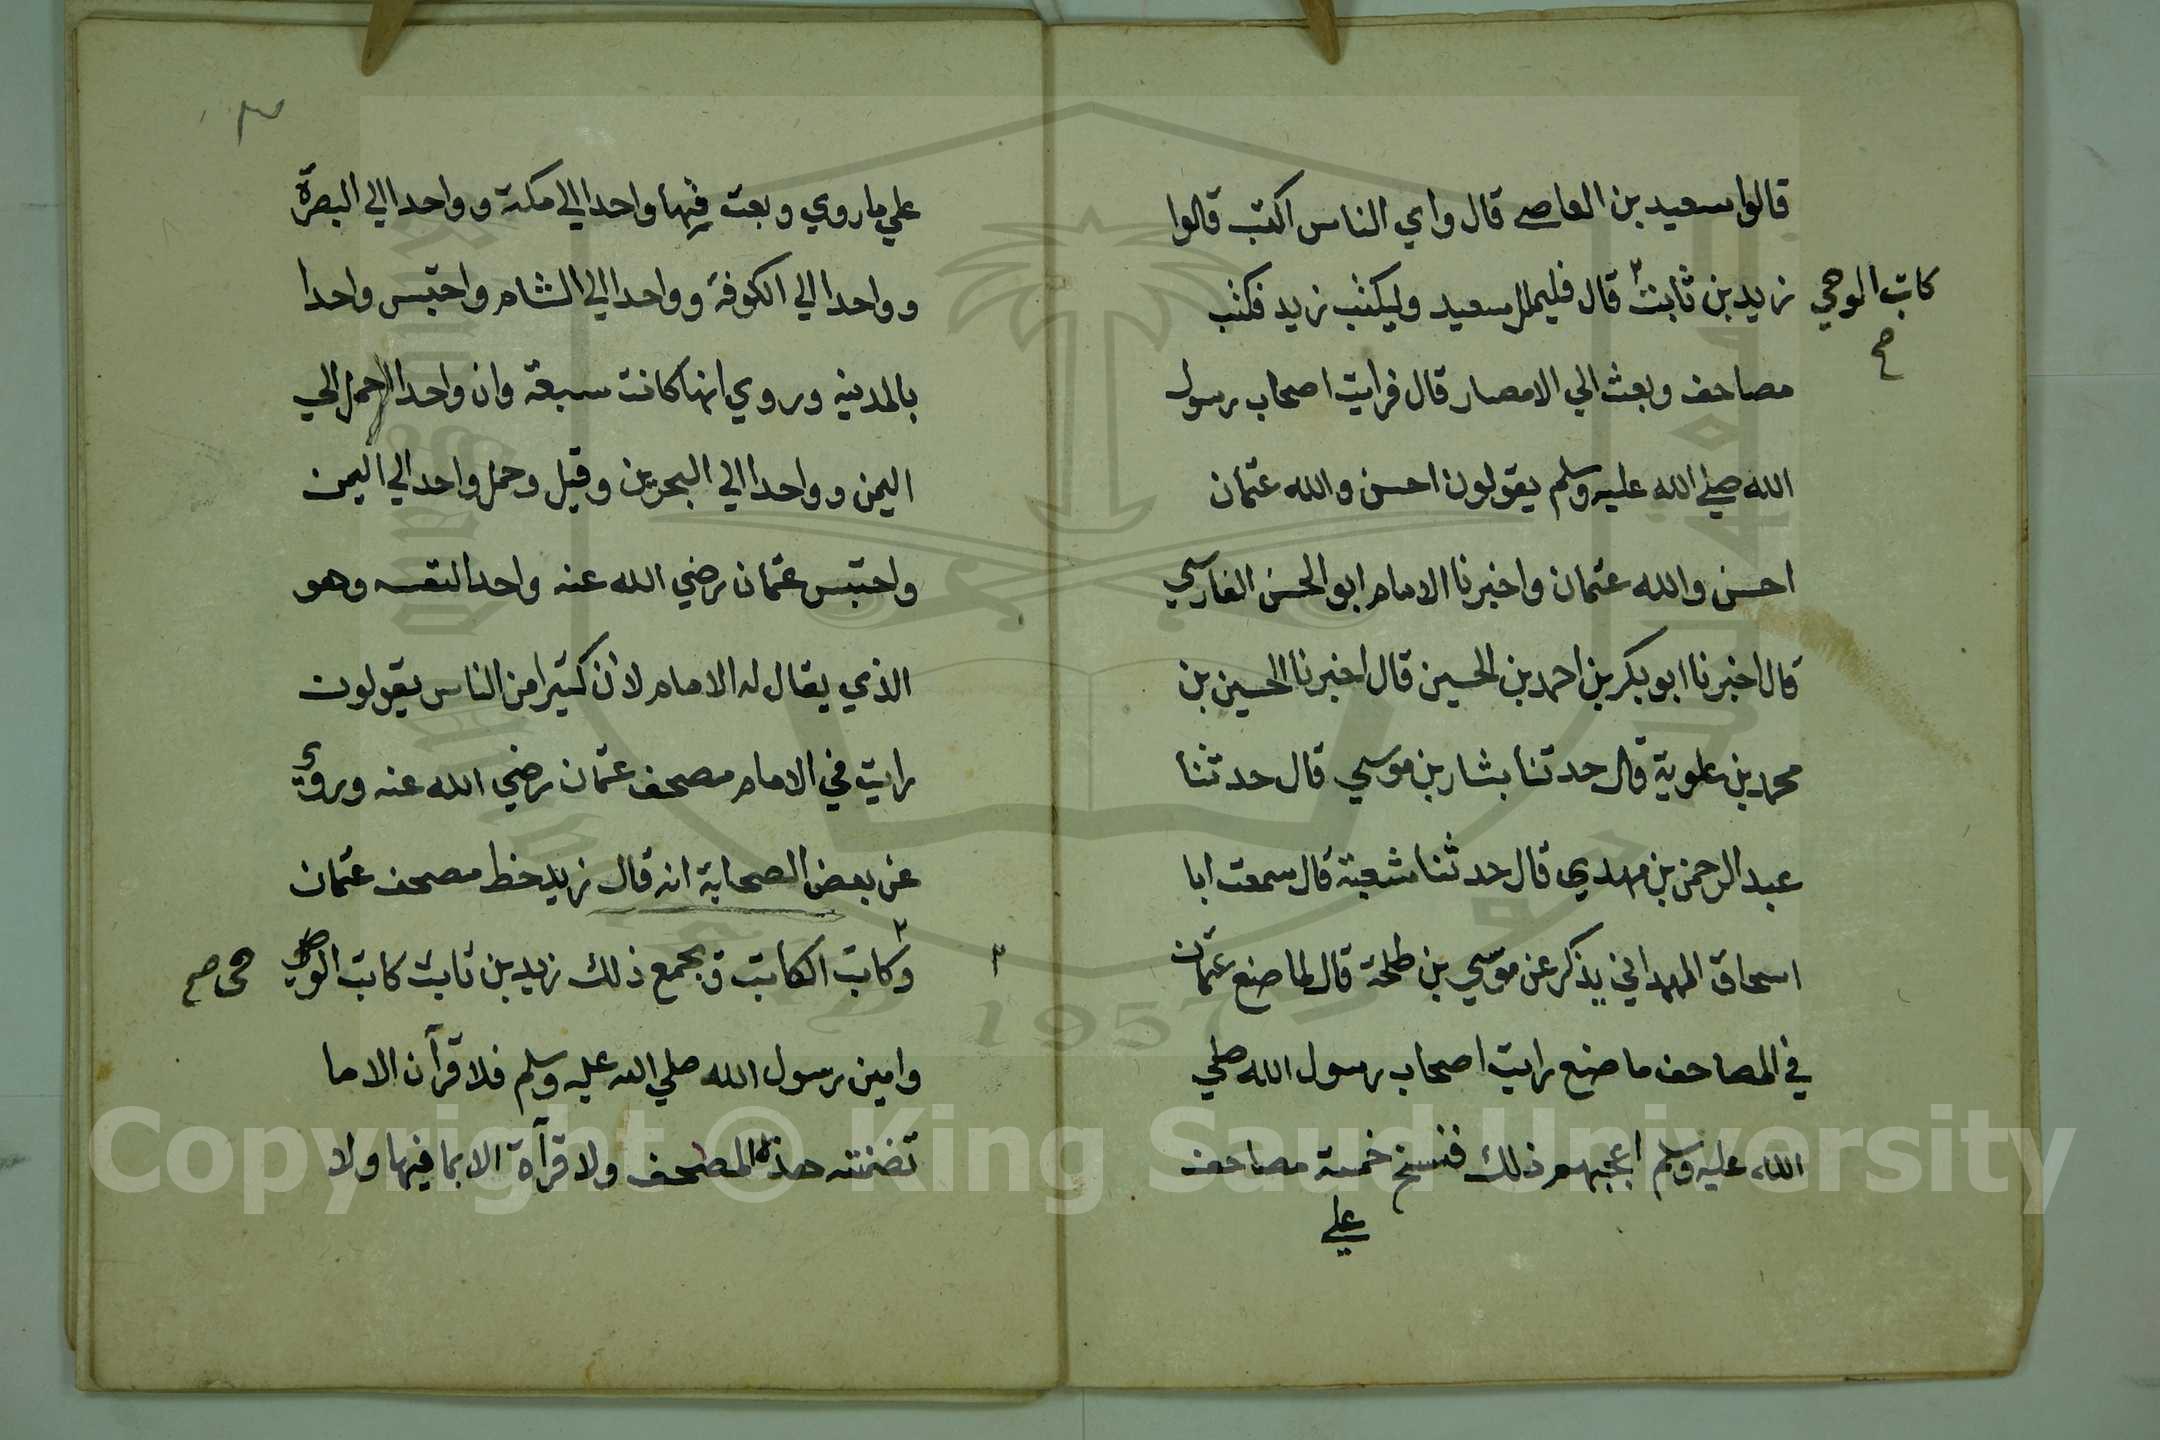 قالوا سعيد بن العاصي قال واي الناس اكتب قالوا
زيد بن ثابت قال فليملل سعيد وليكتب زيد فكتب
كاتب الوحي
صح
مصاحف وبعث الي الامصار قال فرايت اصحاب رسول
الله صلي الله عليه وسلم يقولون احسن والله عثمان
احسن والله عثمان واخبرنا الامام ابو الحسن الفارسي
قال اخبرنا ابو بكر بن احمد بن الحسين قال اخبرنا الحسين بن
محمد بن علوية قال حدثنا بشار بن موسي قال حدثنا
عبد الرحمن بن مهدي قال حدثنا شعبة قال سمعت ابا
اسحاق الهمداني يذكر عن موسي بن طلحة قال لما صنع عثمان
في المصاحف ما صنع رايت اصحاب رسول الله صلي
الله عليه وسلم اعجبهم ذلك فنسخ خمسة مصاحف
علي
علي ما روي وبعث فيها واحدا الي مكة وواحدا الي البصرة
وواحدا الي الكوفة وواحدا الي الشام واحتبس واحدا
بالمدينه وروي انها كانت سبعة وان واحدا حمل الي
اليمن وواحدا الي البحرين وقيل وحمل واحد الي اليمن
واحتبس عثمان رضي الله عنه واحدا لنفسه وهو
الذي يقال له الامام لان كثيرا من الناس يقولون
رايت في الامام مصحف عثمان رضي الله عنه وروي
عن بعض الصحابة انه قال زيد خط مصحف عثمان
وكاتب الكاتب بجمع ذلك زيد بن ثابت كاتب الوحي
حي صح
وامين رسول الله صلي الله عليه وسلم فلا قرآن الا ما
تضمنته هذه المصحف ولا قرآة الا بما فيها ولا
Copyright © King Saud University
1957